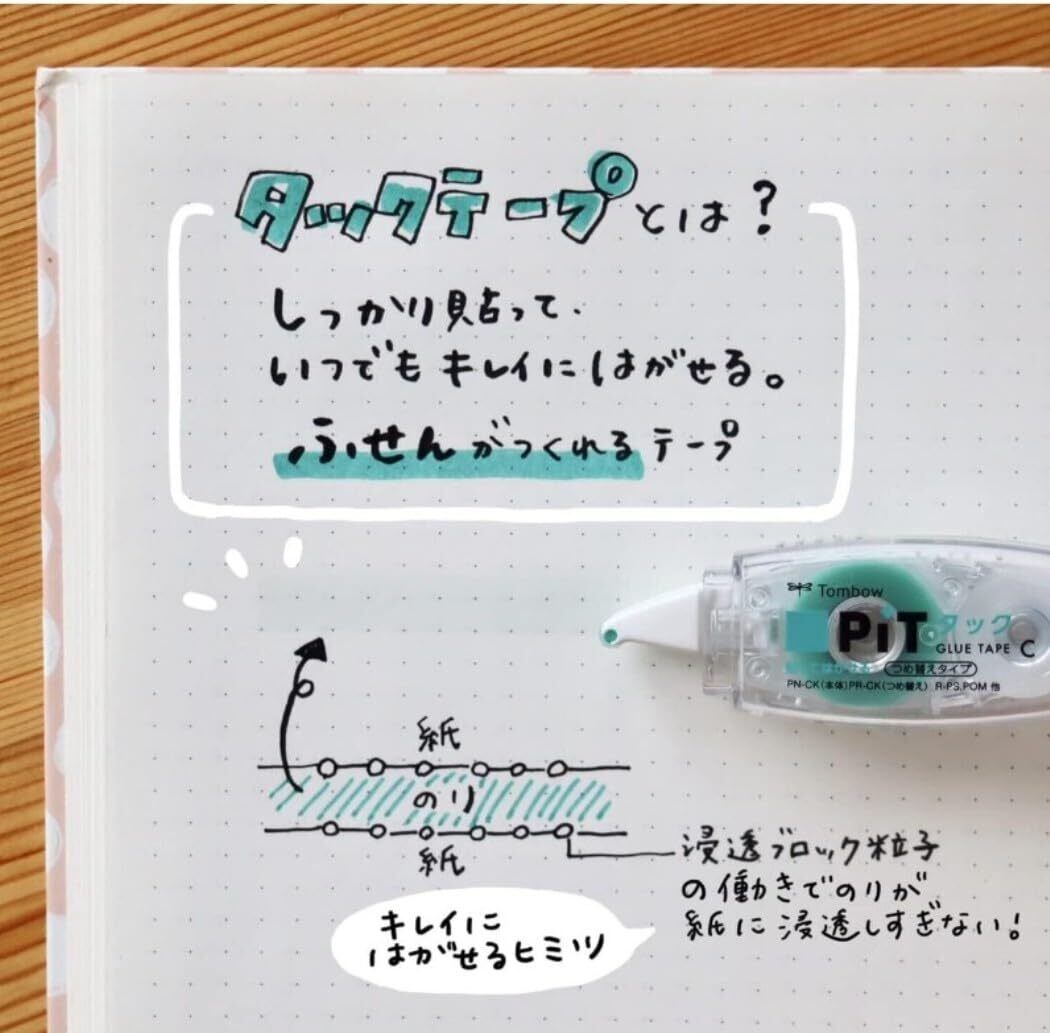 タックテープとは?
しっかり貼って、
いつでもキレイにはがせる。
ふせんがつくれるテープ
Tombow
PiT タック
GLUE TAPE C
つめ替えタイプ
PN-CK(本体)PR-CK(つめ替え) R-PS,POM 他
紙
のり
紙
浸透ブロック粒子
の働きでのりが
紙に浸透しすぎない!
キレイに
はがせるヒミツ